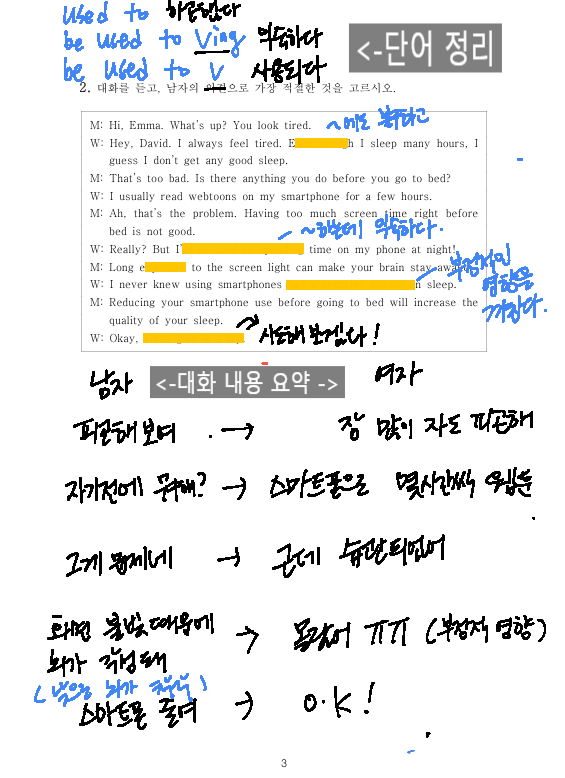 used to 하곤했다
be used to Ving 익숙하다
be used to V 사용되다
<-단어 정리
2. 대화를 듣고, 남자의 의견으로 가장 적절한 것을 고르시오.
M: Hi, Emma. What's up? You look tired. ~에도 불구하고
W: Hey, David. I always feel tired. E h I sleep many hours, I
guess I don't get any good sleep.
M: That's too bad. Is there anything you do before you go to bed?
W: I usually read webtoons on my smartphone for a few hours.
M: Ah, that's the problem. Having too much screen time right before
bed is not good. ~하는데 익숙하다.
W: Really? But I' time on my phone at night!
M: Long e to the screen light can make your brain stay awake.
W: I never knew using smartphones n sleep. 부정적인 영향을 끼친다.
M: Reducing your smartphone use before going to bed will increase the
quality of your sleep.
W: Okay, 시도해보겠다!
남자 <-대화 내용 요약 -> 여자
피곤해보여 → 잠 많이 자도 피곤해
자기전에 뭐해? → 스마트폰으로 몇시간씩 웹툰.
그게 문제네 → 근데 습관되었어
화면 불빛때문에 → 몰랐어 ㅠㅠ (부정적 영향)
뇌가 각성돼
스마트폰 줄여 → O.K!
3